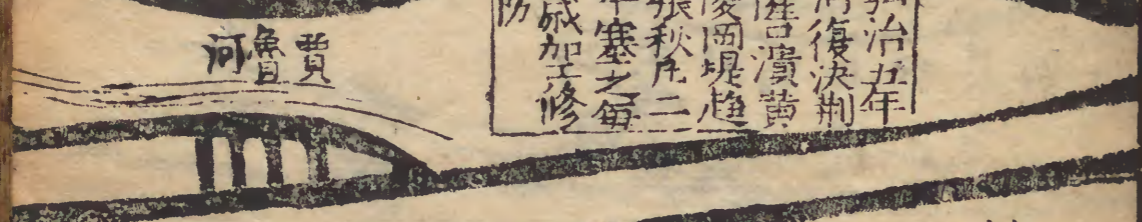 弘治五年
河復決荆
隆口潰黄
陵岡堤趍
張秋凡二
年塞之每
歲加工修
防
賈魯河